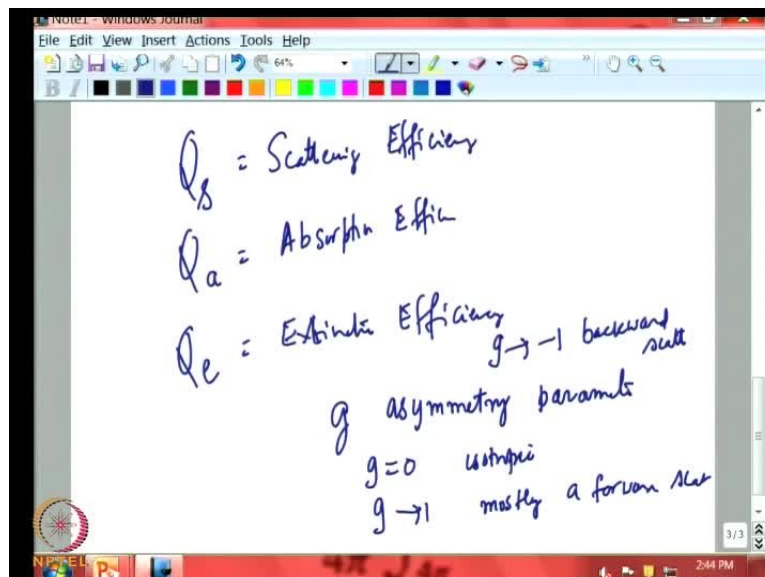 Note1 - Windows Journal
File Edit View Insert Actions Tools Help
64%
B I
Qs = Scattering Efficiency
Qa = Absorption Effic
Qe = Extinction Efficiency
g → -1 backward scatt
g asymmetry parameter
g=0 isotropic
g → 1 mostly a forward scat
3/3
NPTEL
2:44 PM